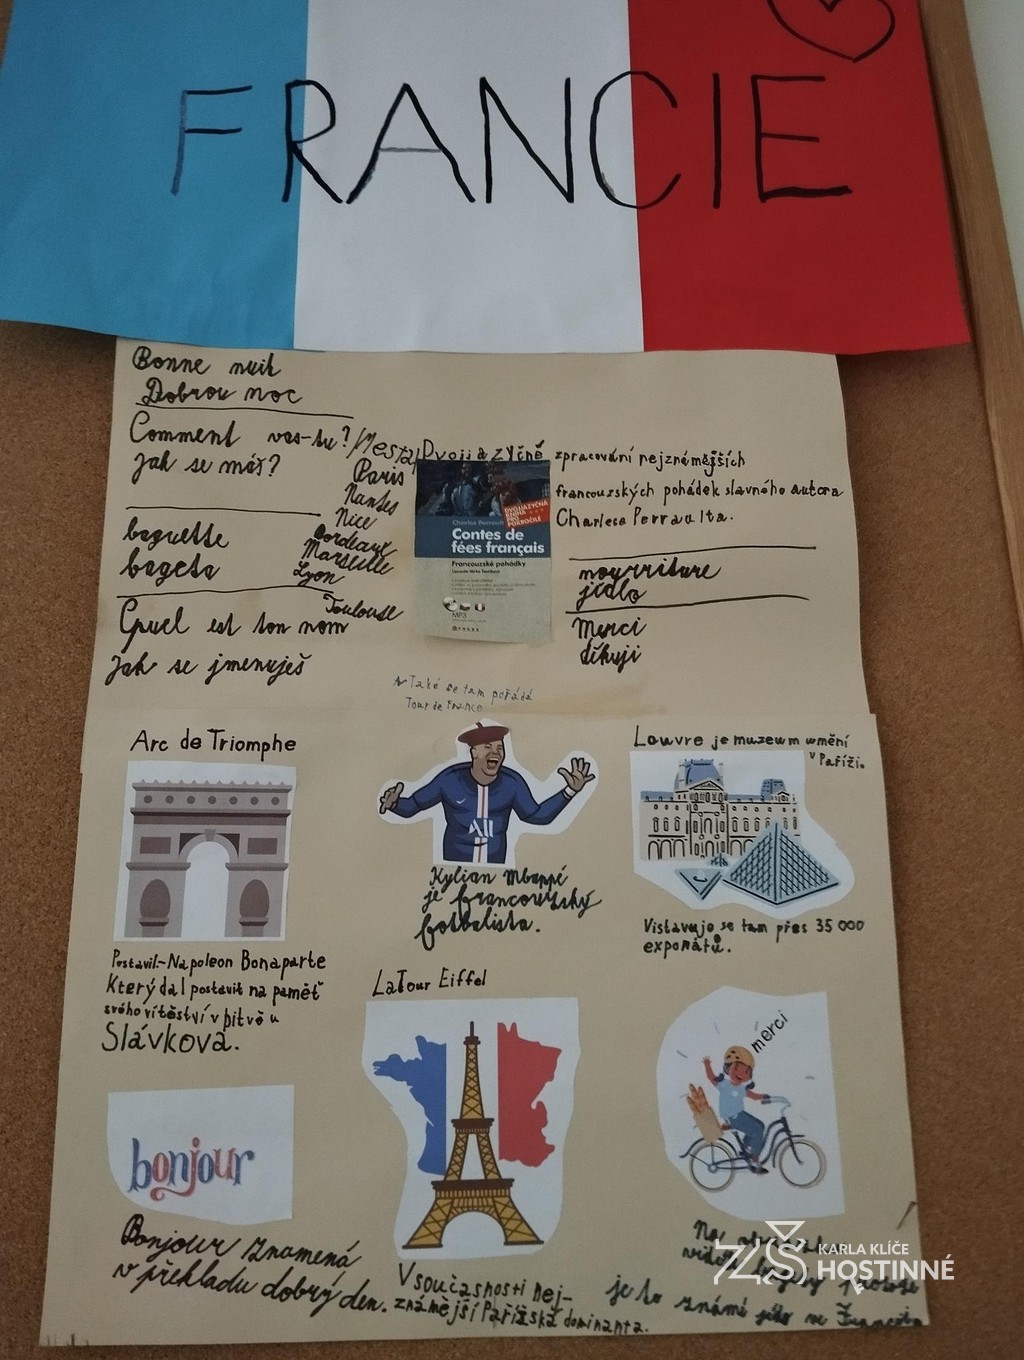 FRANCIE
Bonne nuit
Dobrou noc
Comment vas-tu?
Jak se máš?
baguette
bageta
Quel est ton nom
Jak se jmenuješ
Města
Paris
Nantes
Nice
Bordeaux
Marseille
Lyon
Toulouse
Dvojjazyčně zpracování nejznámějších
francouzských pohádek slavného autora
Charlese Perraulta.
DVOJJAZYČNÁ
KNIHA
PRO
POKROČILÉ
Charles Perrault
Contes de
fées français
Francouzské pohádky
MP3
nourriture
jídlo
Merci
děkuji
Také se tam pořádá
Tour de France
Arc de Triomphe
Postavil-Napoleon Bonaparte
Který dal postavit na paměť
svého vítěství v bitvě u
Slávkova.
All
Kylian Mbappé
je francouzský
fotbalista.
Louvre je muzeum umění
v Paříži.
Vistavuje se tam přes 35 000
exponátů.
LaTour Eiffel
V současnosti nej-
známější Pařížská dominanta.
bonjour
Bonjour znamená
v překladu dobrý den.
merci
Na
je to známé jídlo ve
ZŠ KARLA KLÍČE
HOSTINNÉ